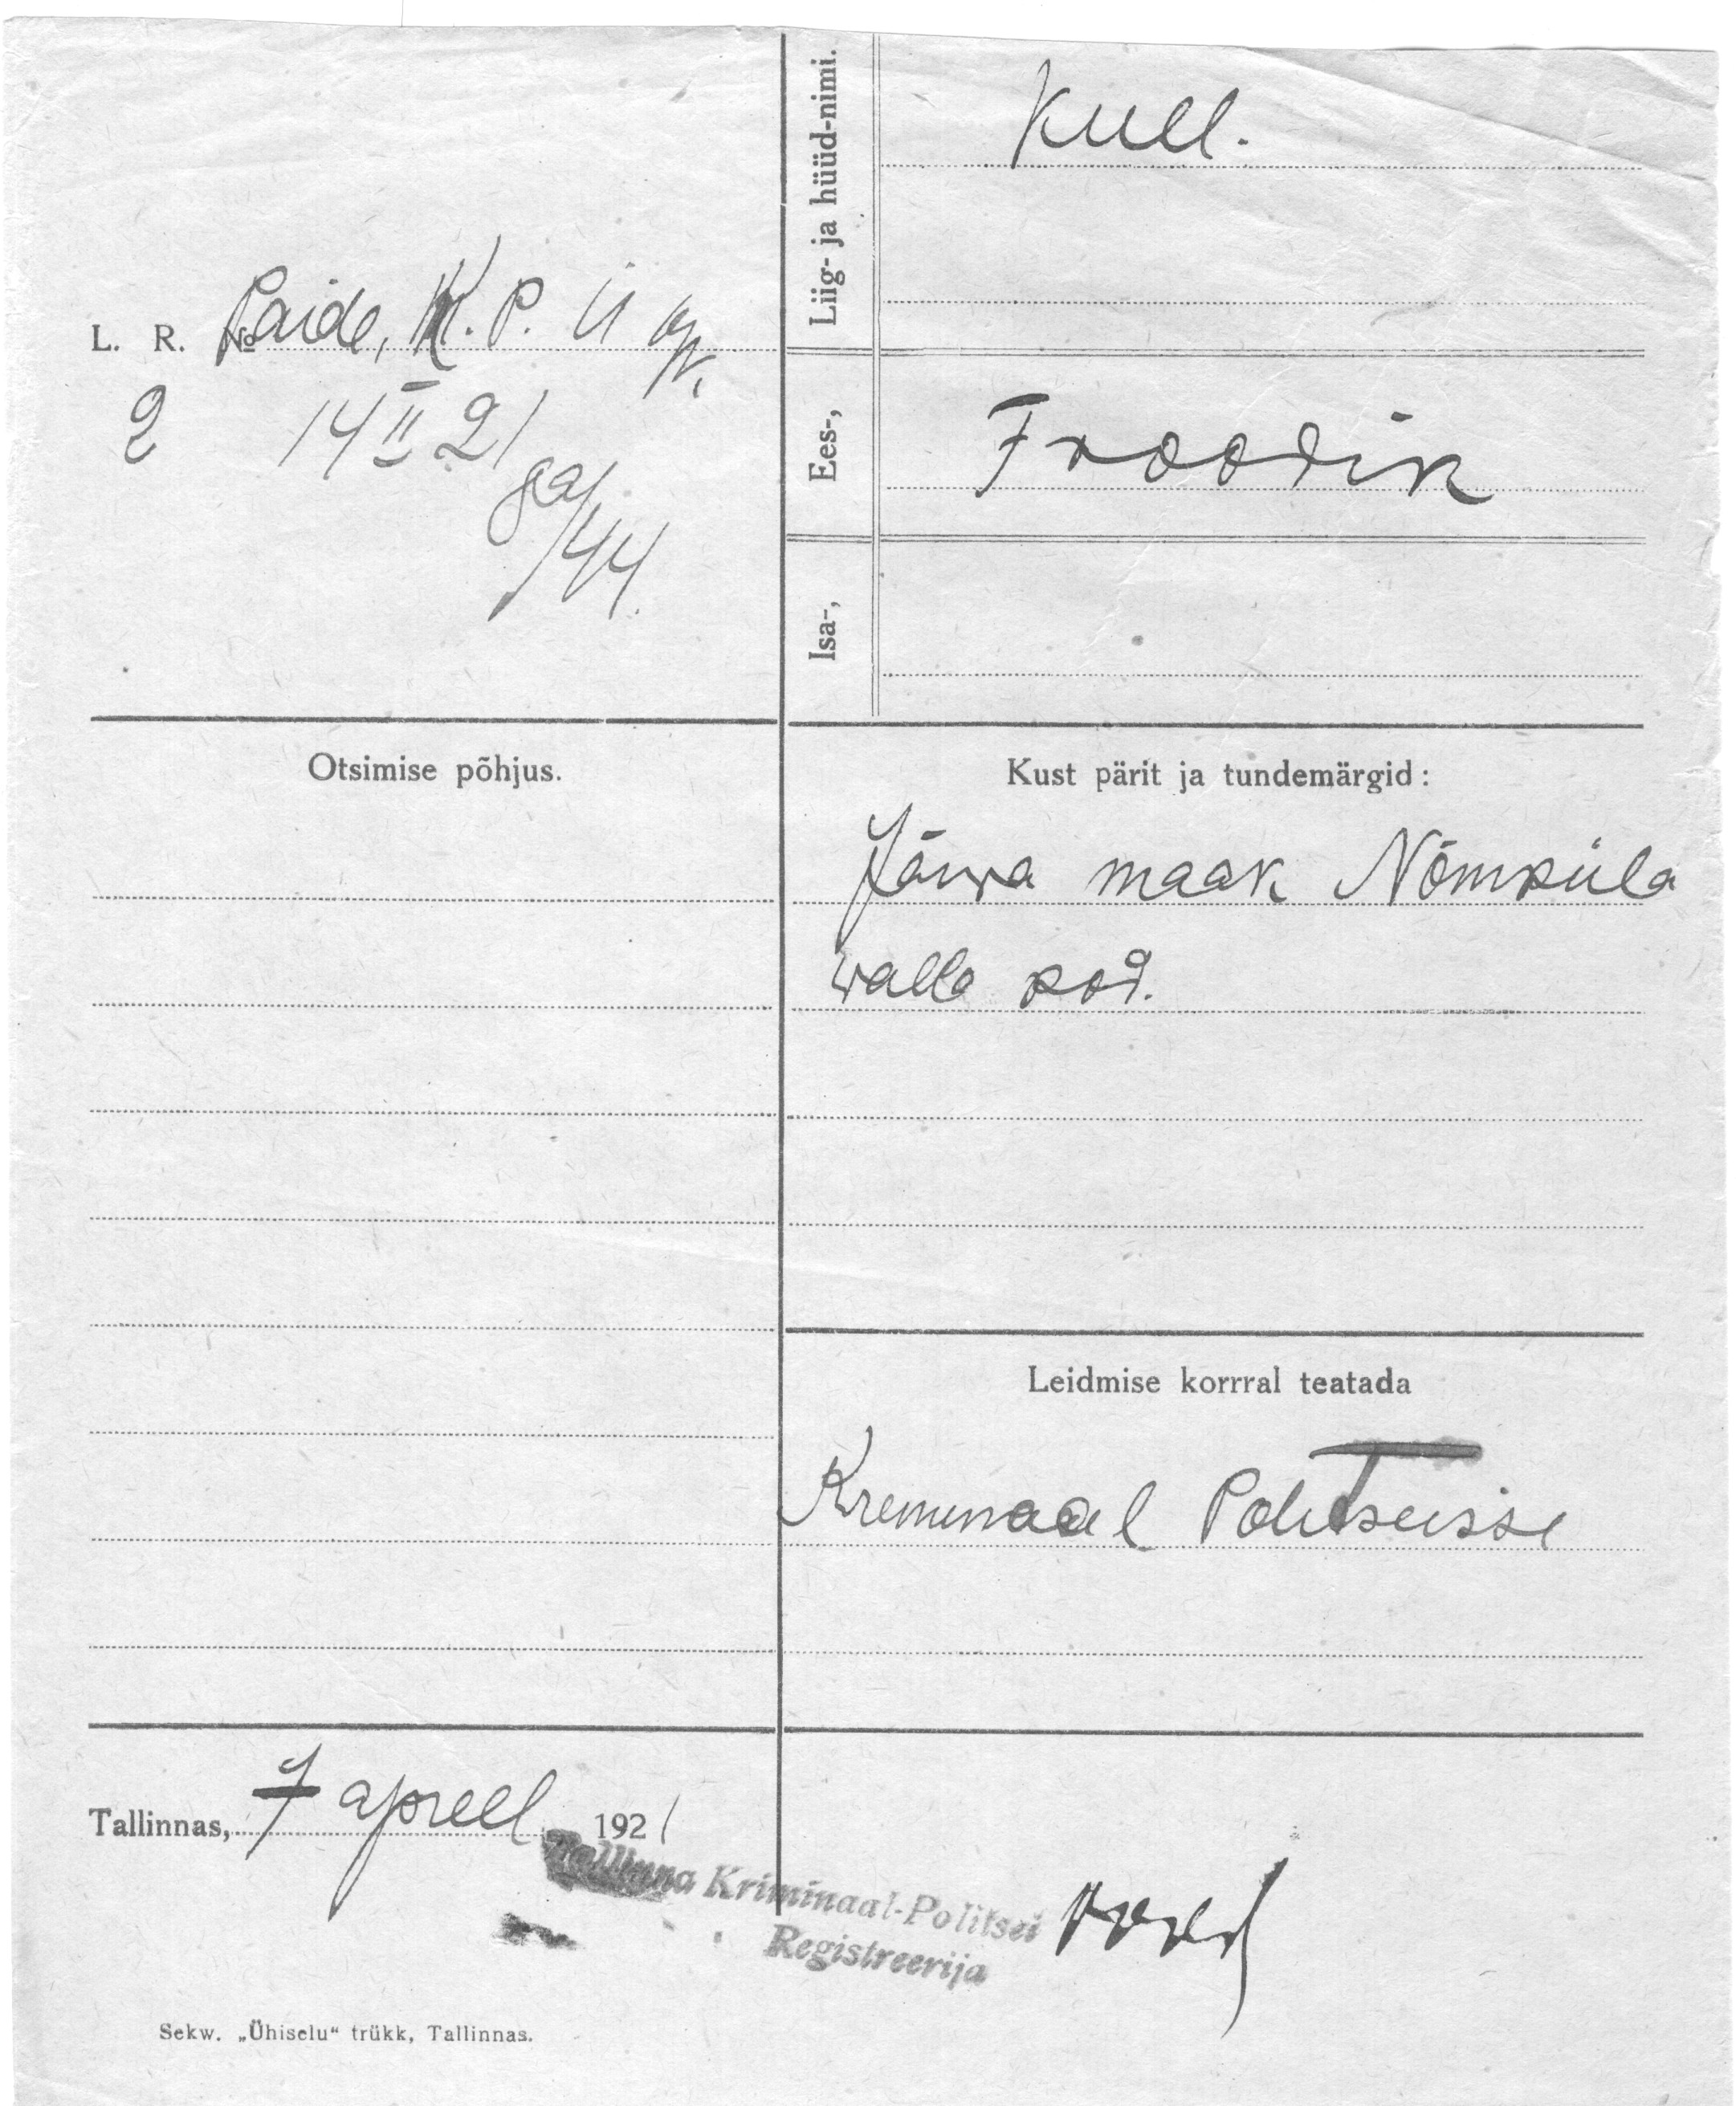 L. R. № Paide, K. P.
2 14 II 21
ga/144.
Liig- ja hüüd-nimi.
Kull.
Ees-,
Froodik
Isa-,
Otsimise põhjus.
Kust pärit ja tundemärgid:
Järwa maak Nõmküla
walla kod.
Leidmise korrral teatada
Kremenaal Politseisse
Tallinnas, 7 apreell 1921
Tallinna Kriminaal-Politsei
Registreerija
Sekw. „Ühiselu“ trükk, Tallinnas.